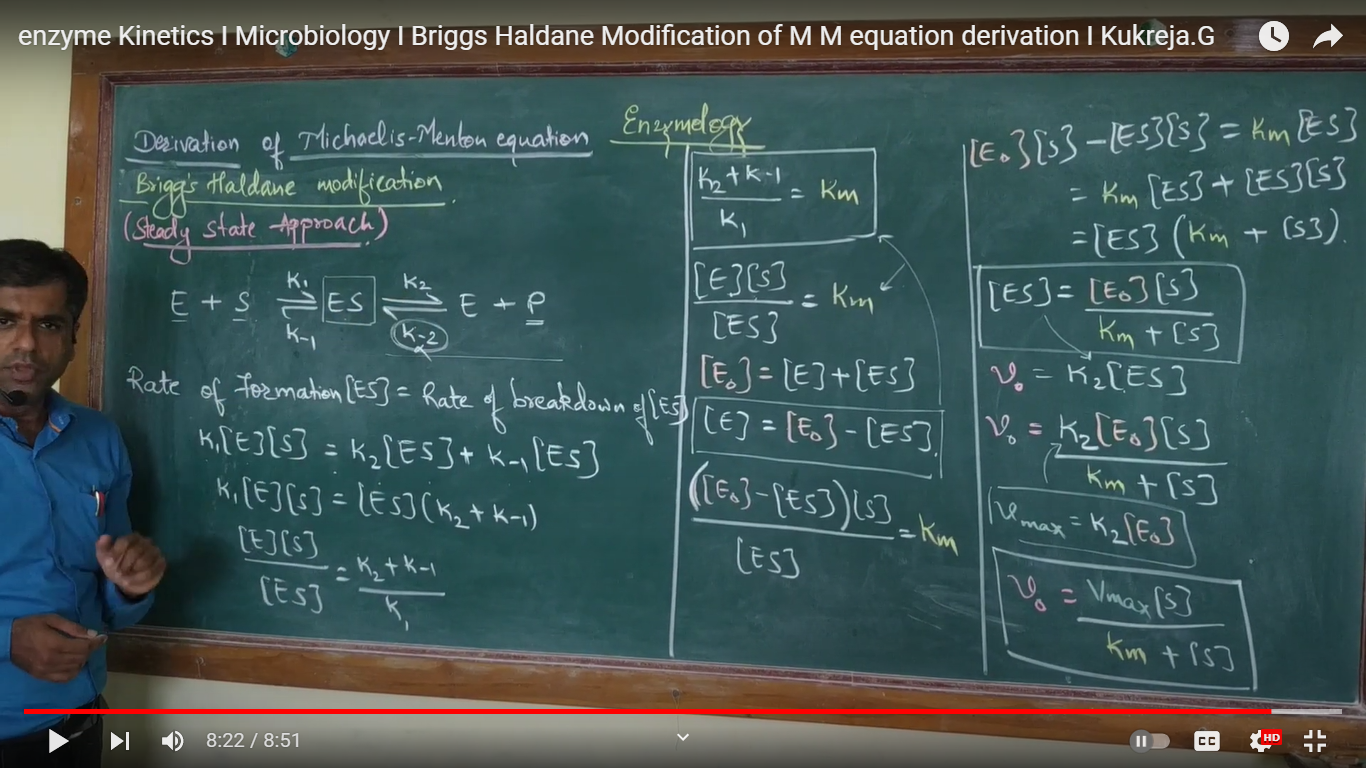 enzyme Kinetics I Microbiology I Briggs Haldane Modification of M M equation derivation I Kukreja.G
Enzymology
Derivation of Michaelis-Menton equation
Brigg's Haldane modification
(Steady state Approach)
E + S K₁ ⇌ K-1 [ES] K₂ ⇌ K-2 E + P
Rate of formation [ES] = Rate of breakdown of [ES]
K₁[E][S] = K₂[ES] + K-1[ES]
K₁[E][S] = [ES](K₂ + K-1)
[E][S] / [ES] = K₂ + K-1 / K₁
K₂ + K-1 / K₁ = Km
[E][S] / [ES] = Km
[E₀] = [E] + [ES]
[E] = [E₀] - [ES]
([E₀] - [ES])[S] / [ES] = Km
[E₀][S] - [ES][S] = Km[ES]
= Km [ES] + [ES][S]
= [ES] (Km + [S]).
[ES] = [E₀][S] / Km + [S]
v₀ = K₂[ES]
v₀ = K₂[E₀][S] / Km + [S]
Vmax = K₂[E₀]
v₀ = Vmax[S] / Km + [S]
8:22 / 8:51
CC
HD